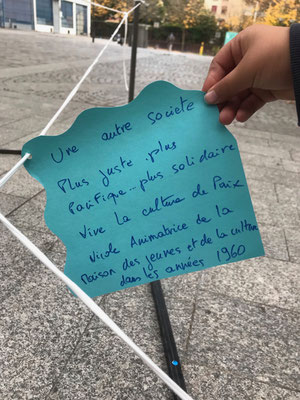 Une autre société
Plus juste.plus
Pacifique...plus solidaire
Vive La culture de Paix
Animatrice de la
Maison des jeunes et de la culture
dans les années 1960